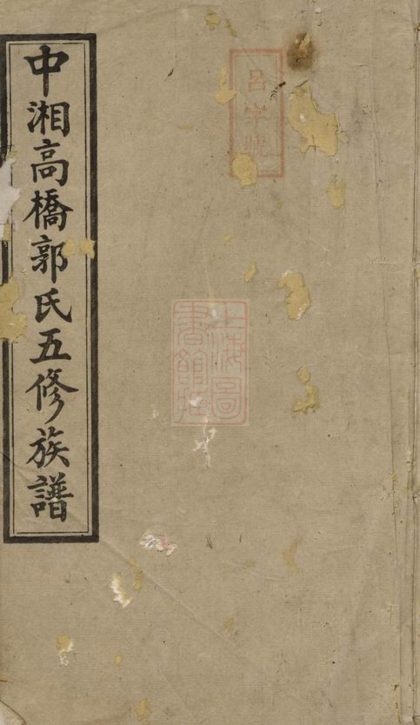 中湘高橋郭氏五修族譜
上海圖
書館藏